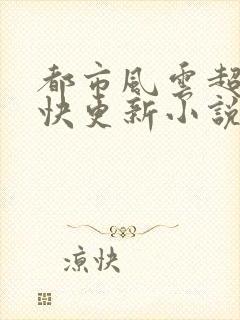 都市風雲超
快更新小說
涼快